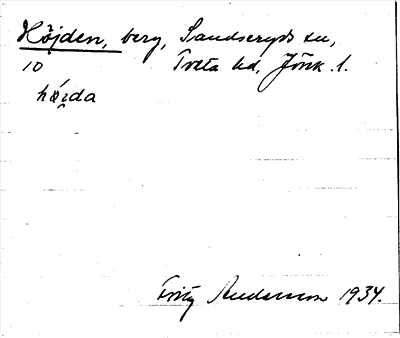 Höjden, berg, Sandseryds sn,
10 Tveta hd, Jönk. l.
Fritz Andersson 1934.